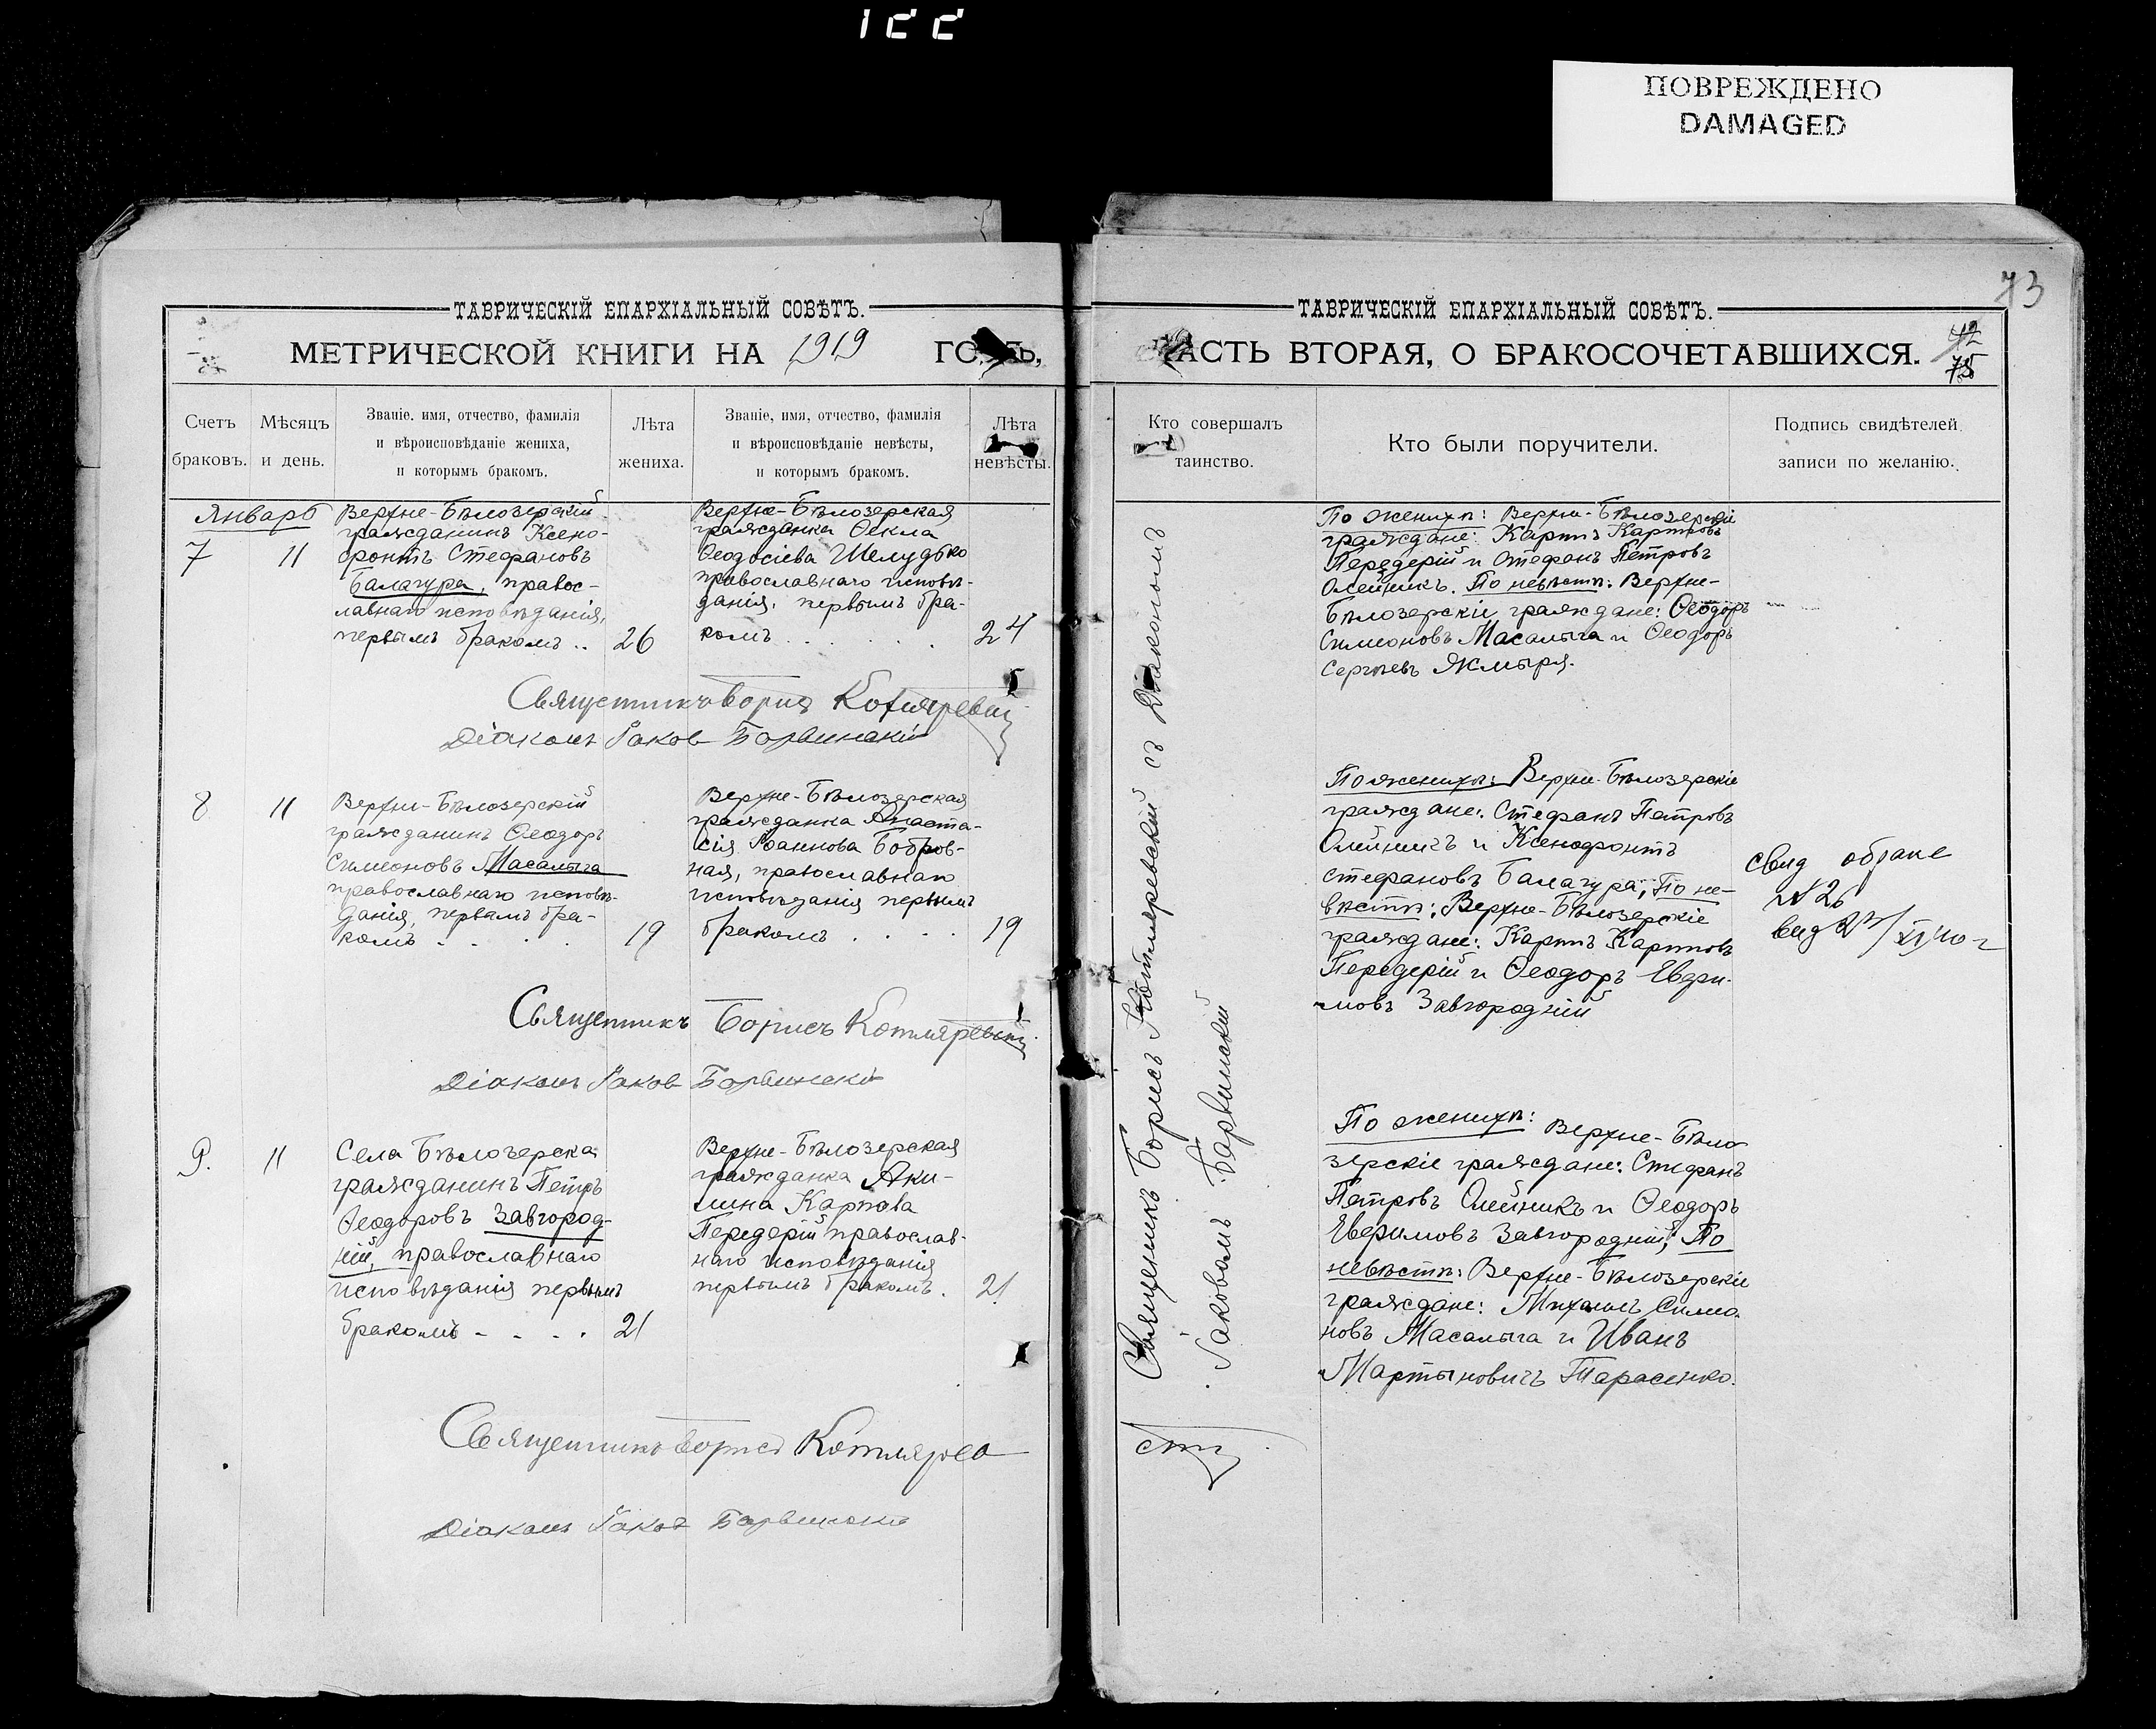 122
ПОВРЕЖДЕНО
DAMAGED
73
ТАВРИЧЕСКІЙ ЕПАРХІАЛЬНЫЙ СОВѢТЪ.
МЕТРИЧЕСКОЙ КНИГИ НА 1919
Счетъ браковъ.
Мѣсяцъ и день.
Званіе, имя, отчество, фамилія
и вѣроисповѣданіе жениха,
и которымъ бракомъ.
Лѣта жениха.
Званіе, имя, отчество, фамилія
и вѣроисповѣданіе невѣсты,
и которымъ бракомъ.
Лѣта невѣсты.
Январь
7
11
Верхне-Бѣлозерскій
гражданинъ Ксено-
фонтъ Стефановъ
Балагура, правос-
лавнаго исповѣданія,
первымъ бракомъ ..
26
Верхне-Бѣлозерская
гражданка Ѳекла
Ѳеодосіева Шелудько
православнаго исповѣ-
данія, первымъ бра-
комъ . . .
24
Священникъ Борисъ Котляревскій
Діаконъ Іаковъ Барвинскій
8
11
Верхне-Бѣлозерскій
гражданинъ Ѳеодоръ
Симеоновъ Масалыга
православнаго исповѣ-
данія, первымъ бра-
комъ . . . .
19
Верхне-Бѣлозерская
гражданка Анаста-
сія Іоаннова Бобров-
ная, православнаго
исповѣданія первымъ
бракомъ . . . .
19
Священникъ Борисъ Котляревскій
Діаконъ Іаковъ Барвинскій
9.
11
Села Бѣлозерска
гражданинъ Петръ
Ѳеодоровъ Завгород-
ній, православнаго
исповѣданія первымъ
бракомъ - . . .
21
Верхне-Бѣлозерская
гражданка Аки-
лина Карпова
Передерій православ-
наго исповѣданія
первымъ бракомъ.
21
Священникъ Борисъ Котлярев
Діаконъ Іаковъ Барвинскій
ТАВРИЧЕСКІЙ ЕПАРХІАЛЬНЫЙ СОВѢТЪ.
ЧАСТЬ ВТОРАЯ, О БРАКОСОЧЕТАВШИХСЯ.
42
75
Кто совершалъ таинство.
Кто были поручители.
Подпись свидѣтелей
записи по желанію.
Священникъ Борисъ Котляревскій съ Діакономъ
Іаковомъ Барвинскій
По женихѣ: Верхне-Бѣлозерскіе
граждане: Карпъ Карповъ
Передерій и Стефанъ Петровъ
Олейникъ. По невѣстѣ: Верхне-
Бѣлозерскіе граждане: Ѳеодоръ
Симеоновъ Масалыга и Ѳеодоръ
Сергѣевъ Жмыря.
По женихѣ: Верхне-Бѣлозерскіе
граждане: Стефанъ Петровъ
Олейникъ и Ксенофонтъ
Стефановъ Балагура; По не-
вѣстѣ: Верхне-Бѣлозерскіе
граждане: Карпъ Карповъ
Передерій и Ѳеодоръ Евфи-
мовъ Завгородній
свид о браке
№ 26
По женихѣ: Верхне-Бѣло-
зерскіе граждане: Стефанъ
Петровъ Олейникъ и Ѳеодоръ
Евфимовъ Завгородній; По
невѣстѣ: Верхне-Бѣлозерскіе
граждане: Михаилъ Симео-
новъ Масалыга и Иванъ
Мартыновичъ Тарасенко.